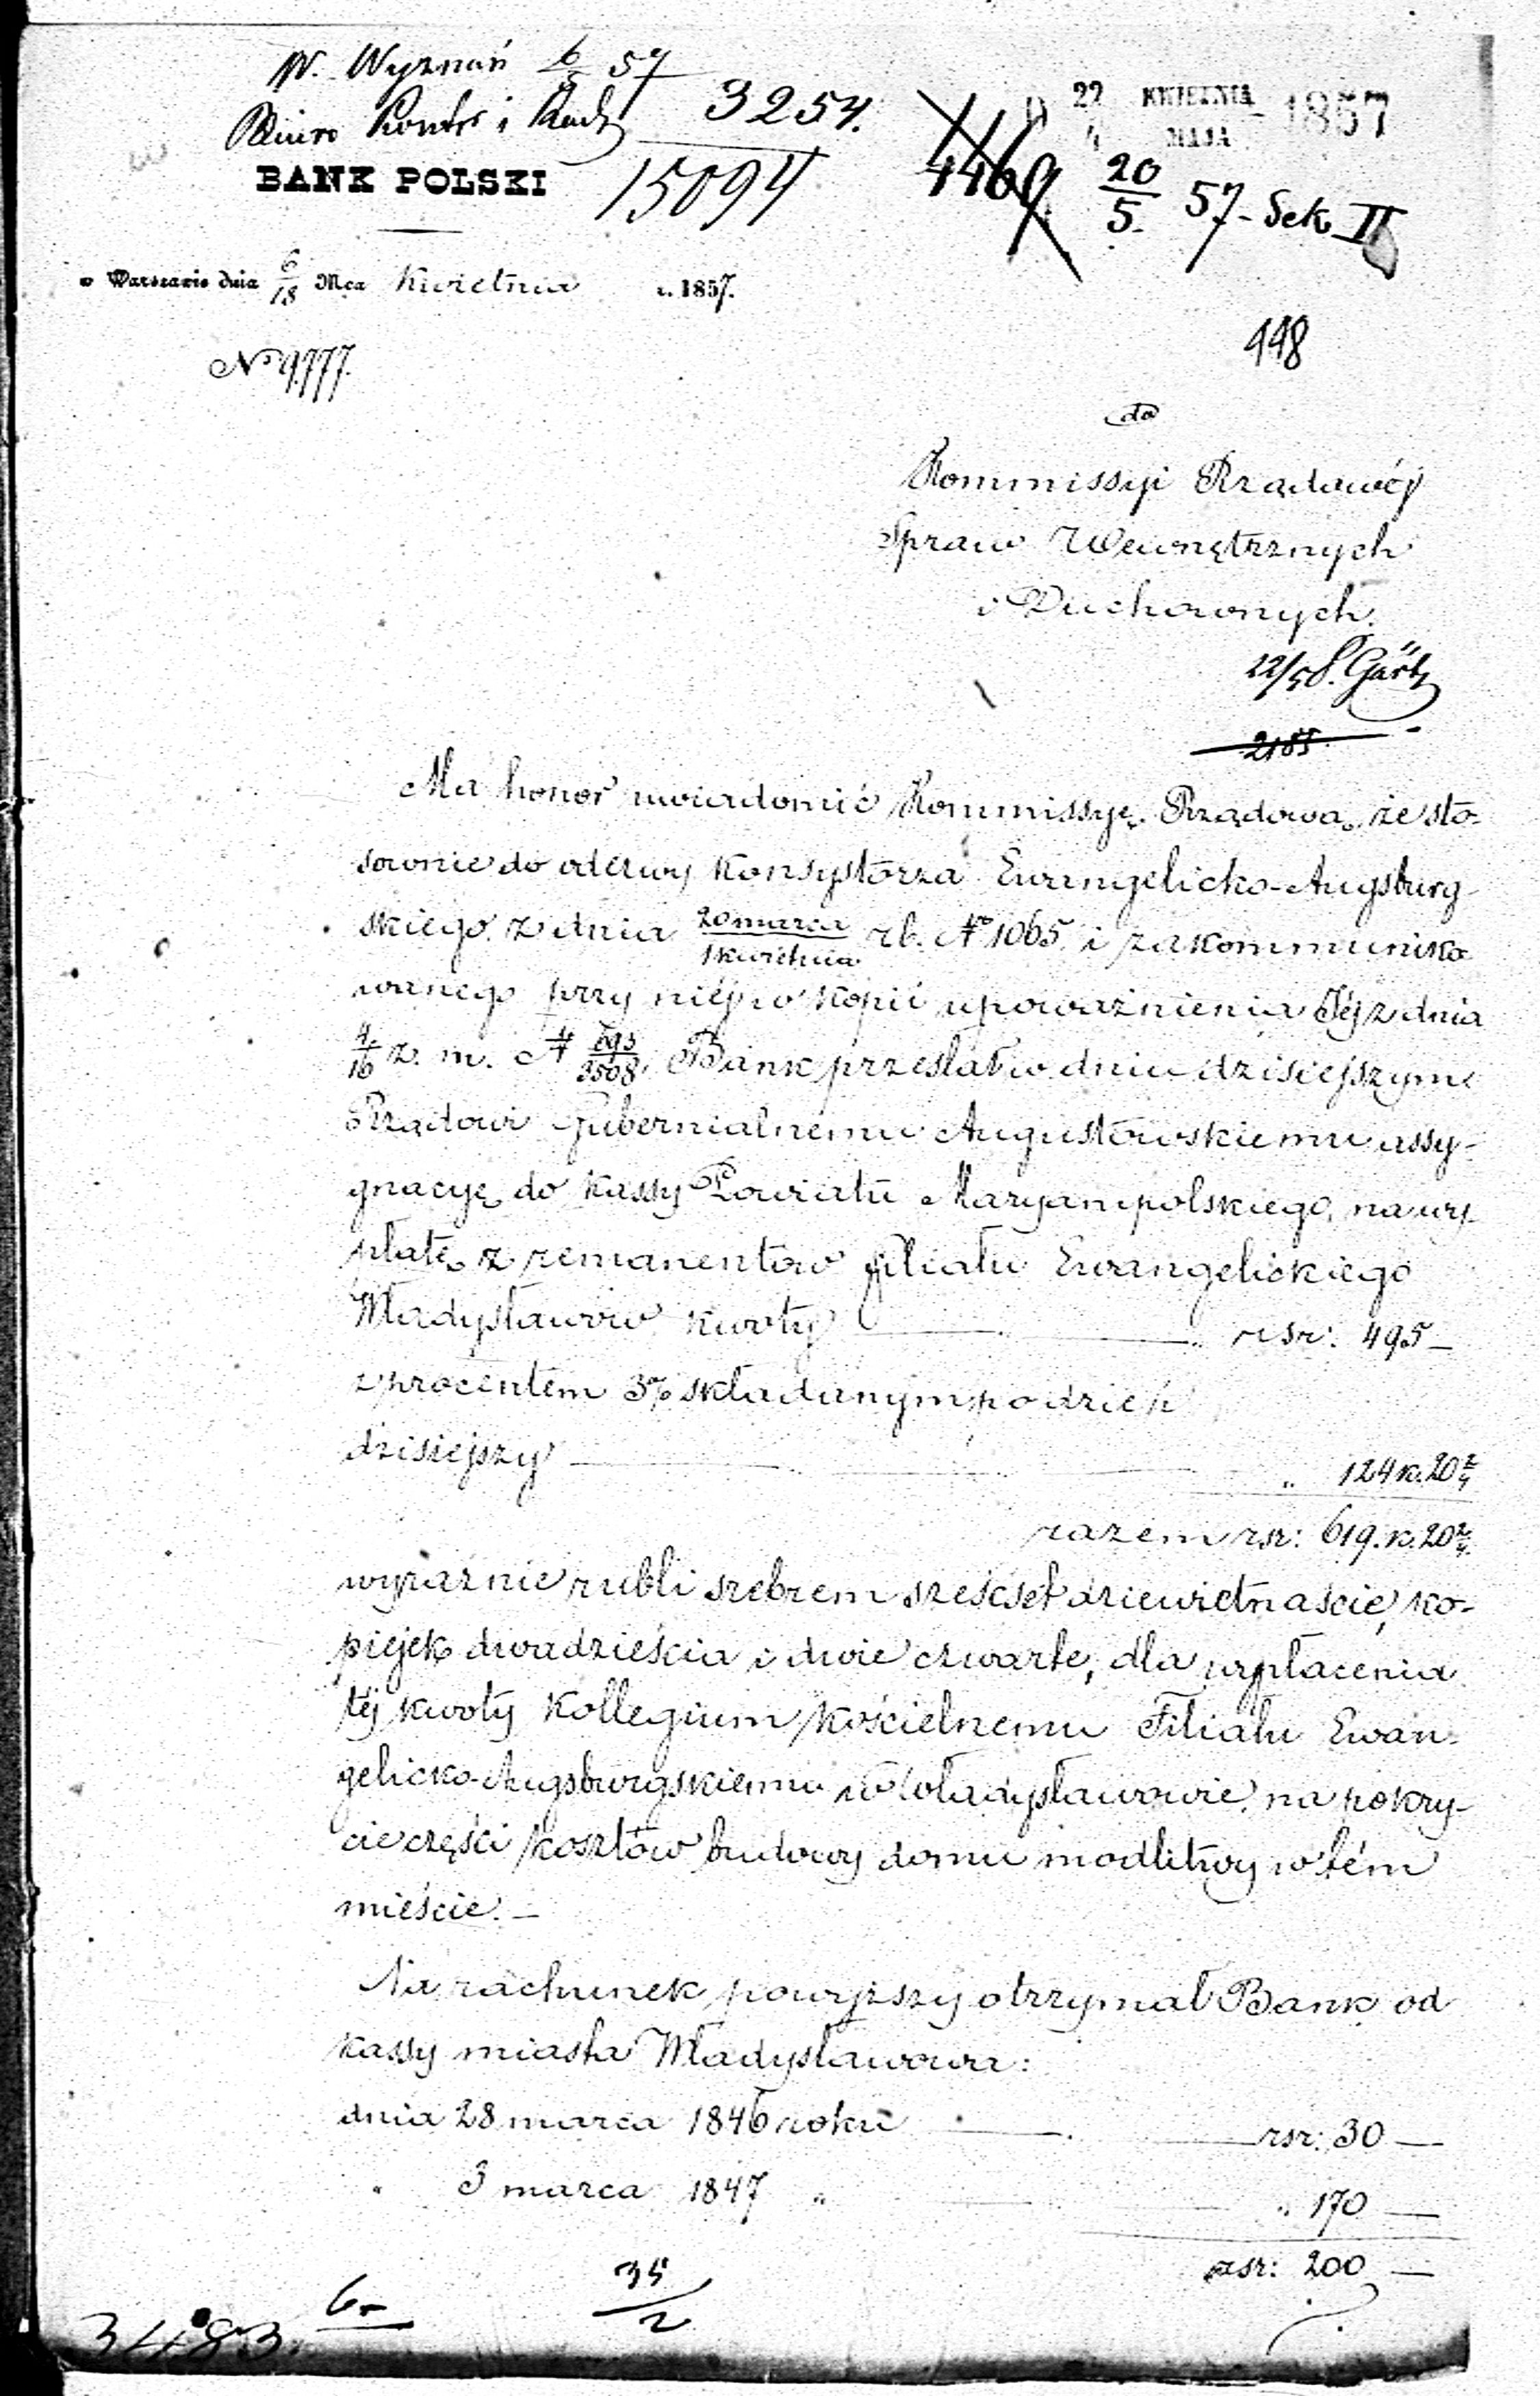 W. Wyznań 6/5 57
Biuro Kontr i Rach 3254.
15094
D 22 KWIETNIA 1857
4 MAJA
4469 20/5. 57 - Sek II
BANK POLSKI
w Warszawie dnia 6/18 Mca Kwietnia r. 1857.
No 9,777.
448
do
Kommissyi Rządowéj
Spraw Wewnętrznych
i Duchownych.
22/5
2155
Ma honor uwiadomić Kommissyę Rządową, że sto-
sownie do odezwy Konsystorza Ewangelicko-Augsburg-
skiego z dnia 20 marca/1 kwietnia rb. No 1065 i zakommuniko-
wanego przy niéj w kopii upoważnienia Jéj z dnia
4/16 z. m. N 3508, Bank przesłał w dniu dzisiejszym
Rządowi Gubernialnemu Augustowskiemu assy-
gnacyę do kassy Powiatu Maryampolskiego, na wy-
płatę z remanentów filiału Ewangelickiego
Władysławów kwoty rsr: 495 —
z procentem 3% składanym po dzień
dzisiejszy " 124 k. 20 2/4
razem rsr: 619. k. 20 2/4
wyraźnie rubli srebrem sześćset dziewiętnaście, ko-
piejek dwadzieścia i dwie czwarte, dla wypłacenia
téj kwoty Kollegium Kościelnemu Filiału Ewan-
gelicko-Augsburgskiemu w Władysławowie, na pokry-
cie części kosztów budowy domu modlitwy w tém
mieście. —
Na rachunek powyższy otrzymał Bank od
kassy miasta Władysławowa:
dnia 28 marca 1846 roku rsr: 30 —
" 3 marca 1847 " " 170 —
rsr: 200 —
6-
35/2
3483.